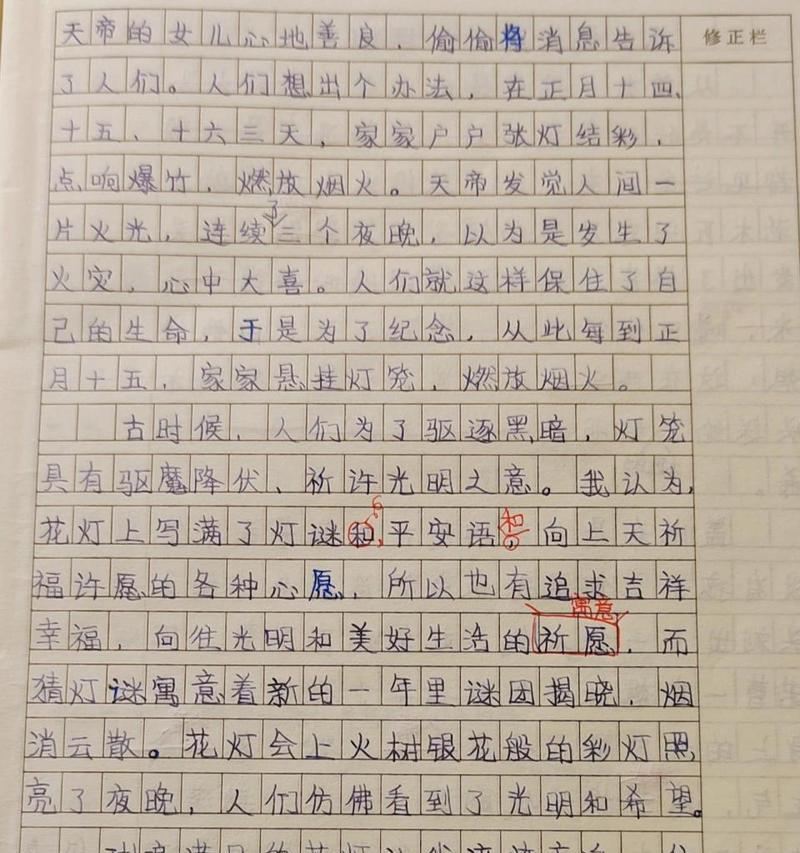 天帝的女儿心地善良，偷偷将消息告诉
修正栏
了人们。人们想出个办法，在正月十四、
十五、十六三天，家家户户张灯结彩，
点响爆竹，燃放烟火。天帝发觉人间一
片火光，连续了三个夜晚，以为是发生了
火灾，心中大喜。人们就这样保住了自
己的生命，于是为了纪念，从此每到正
月十五，家家悬挂灯笼，燃放烟火。
古时候，人们为了驱逐黑暗，灯笼
具有驱魔降伏、祈许光明之意。我认为，
花灯上写满了灯谜和，平安语，和向上天祈
福许愿的各种心愿，所以也有追求吉祥
寓意
幸福，向往光明和美好生活的祈愿，而
猜灯谜寓意着新的一年里谜团揭晓，烟
消云散。花灯会上火树银花般的彩灯照
亮了夜晚，人们仿佛看到了光明和希望。